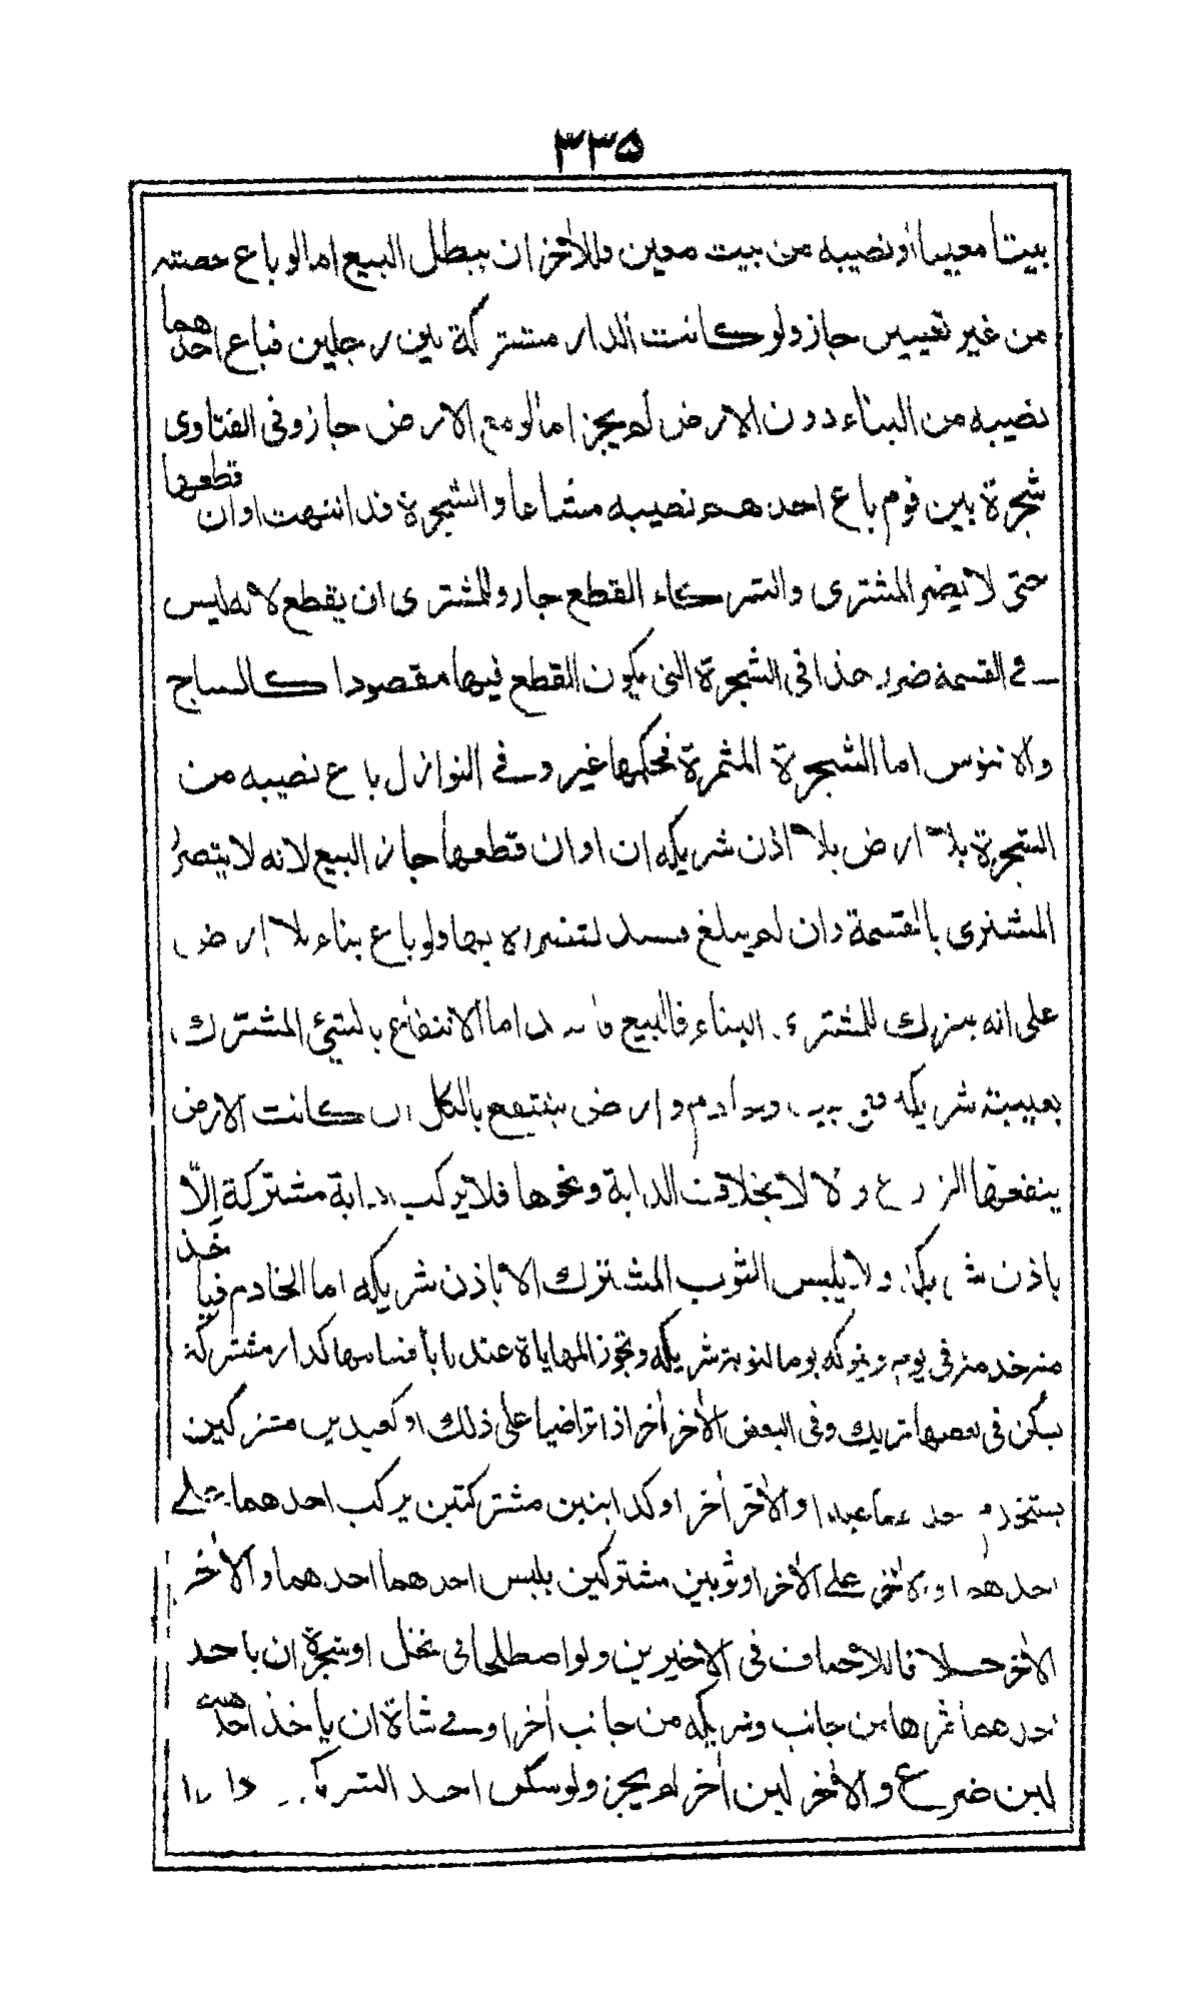 ٣٣٥
بيتا معينا او نصيبه من بيت معين وللأخر ان يبطل البيع اما لو باع حصته
من غير تعيين جاز ولو كانت الدار مشتركة بين رجلين فباع احدهما
نصيبه من البناء دون الارض لم يجز اما لو مع الارض جاز وفى الفتاوى
شجرة بين قوم باع احدهم نصيبه مشاعا والشجرة قد انتهت اوان قطعها
حتى لا يضر المشترى والشركاء القطع جاز وللمشترى ان يقطع لانه ليس
فى القسمة ضرر هذا فى الشجرة التى يكون القطع فيها مقصودا كالساج
اما الشجرة المثمرة فحكمها غير وفى النوازل باع نصيبه من
الشجرة بلا ارض بلا اذن شريكه ان اوان قطعها جاز البيع لانه لا يتضرر
المشترى بالقسمة وان لم يبلغ فسد لتضرره بها ولو باع بناء بلا ارض
على انه يترك للمشترى البناء فالبيع فاسد اما الانتفاع بالشئ المشترك
بغيبة شريكه ففى بيت وارض ينتفع بالكل ان كانت الارض
ينفعها الزرع و لا لا بخلاف الدابة ونحوها فلا يركب دابة مشتركة إلّا
باذن شريكه ولا يلبس الثوب المشترك الا باذن شريكه اما الخادم فيأخذ
منه خدمته فى يوم ويتركه يوما لنوبة شريكه وتجوز المهاياة عندنا باقسامها كدار مشتركة
يسكن فى بعضها شريك وفى البعض الأخر أخر اذا تراضيا على ذلك او كعبدين مشتركين
يستخدم عبدا والأخر أخر او كدابتين مشتركتين يركب احدهما على
احدهما والأخر على الأخر او ثوبين مشتركين يلبس احدهما احدهما والأخر
الأخر فى الاخيرين ولو اصطلحا فى نخل او شجرة ان يأخذ
احدهما ثمرها من جانب وشريكه من جانب أخر او فى شاة ان يأخذ احدهما
لبن ضرع والأخر لبن أخر لم يجز ولو سكن احد